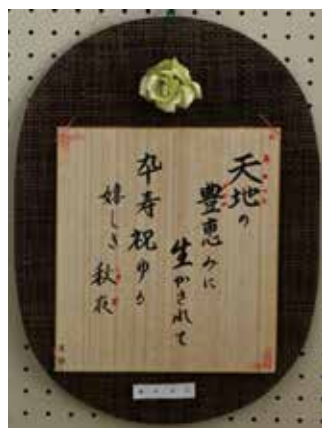 天地の
豊恵みに
生かされて
卆寿祝ゆる
嬉しき秋夜